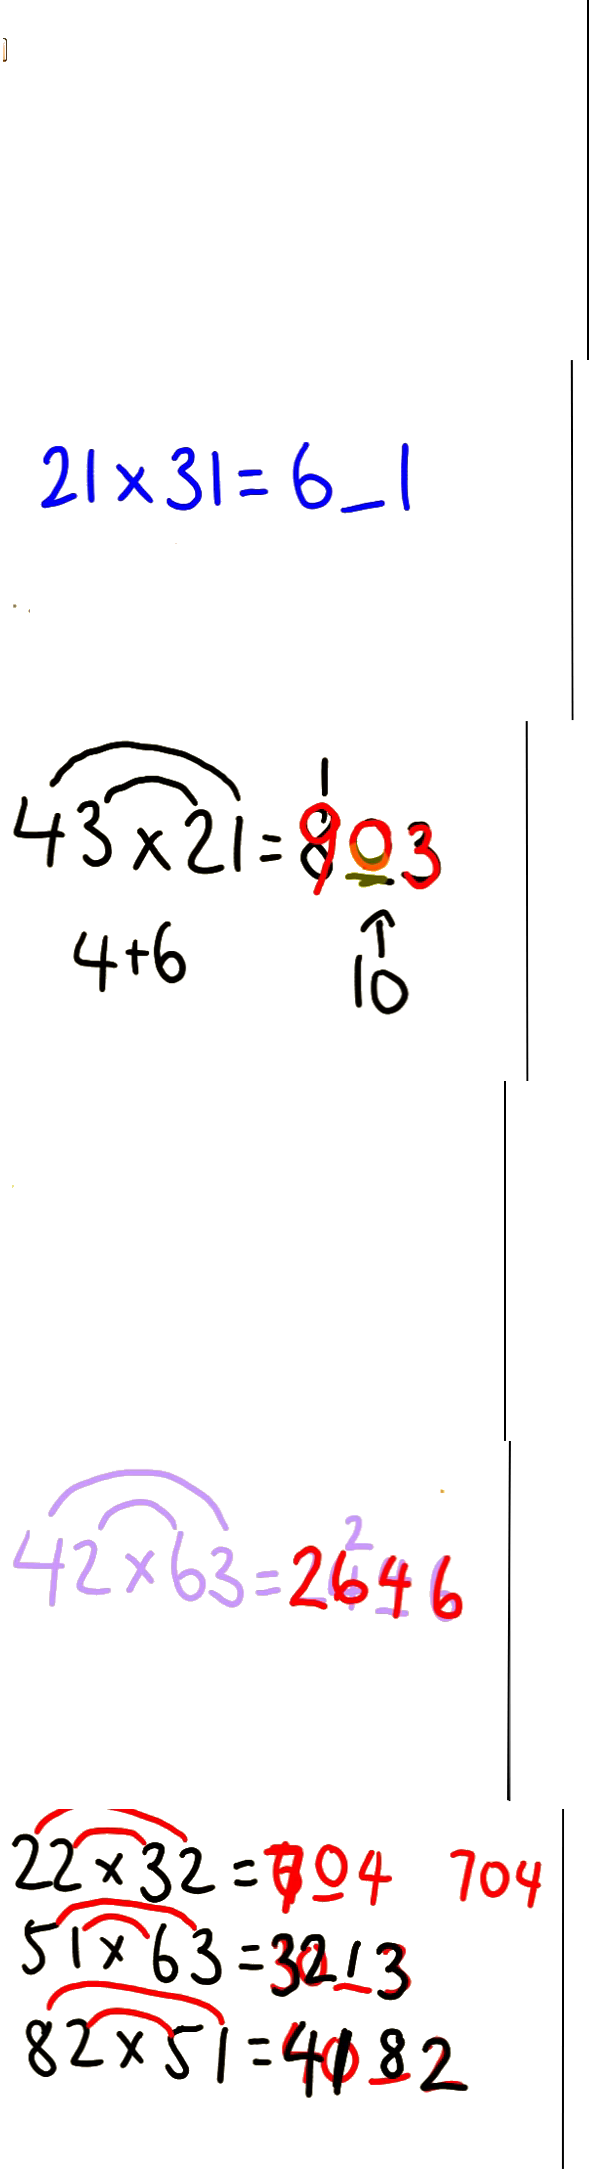 21 x 31 = 6_1
1
43 x 21 = 903
4+6
↑
10
2
42 x 63 = 2646
22 x 32 = 704 704
51 x 63 = 3213
82 x 51 = 4182